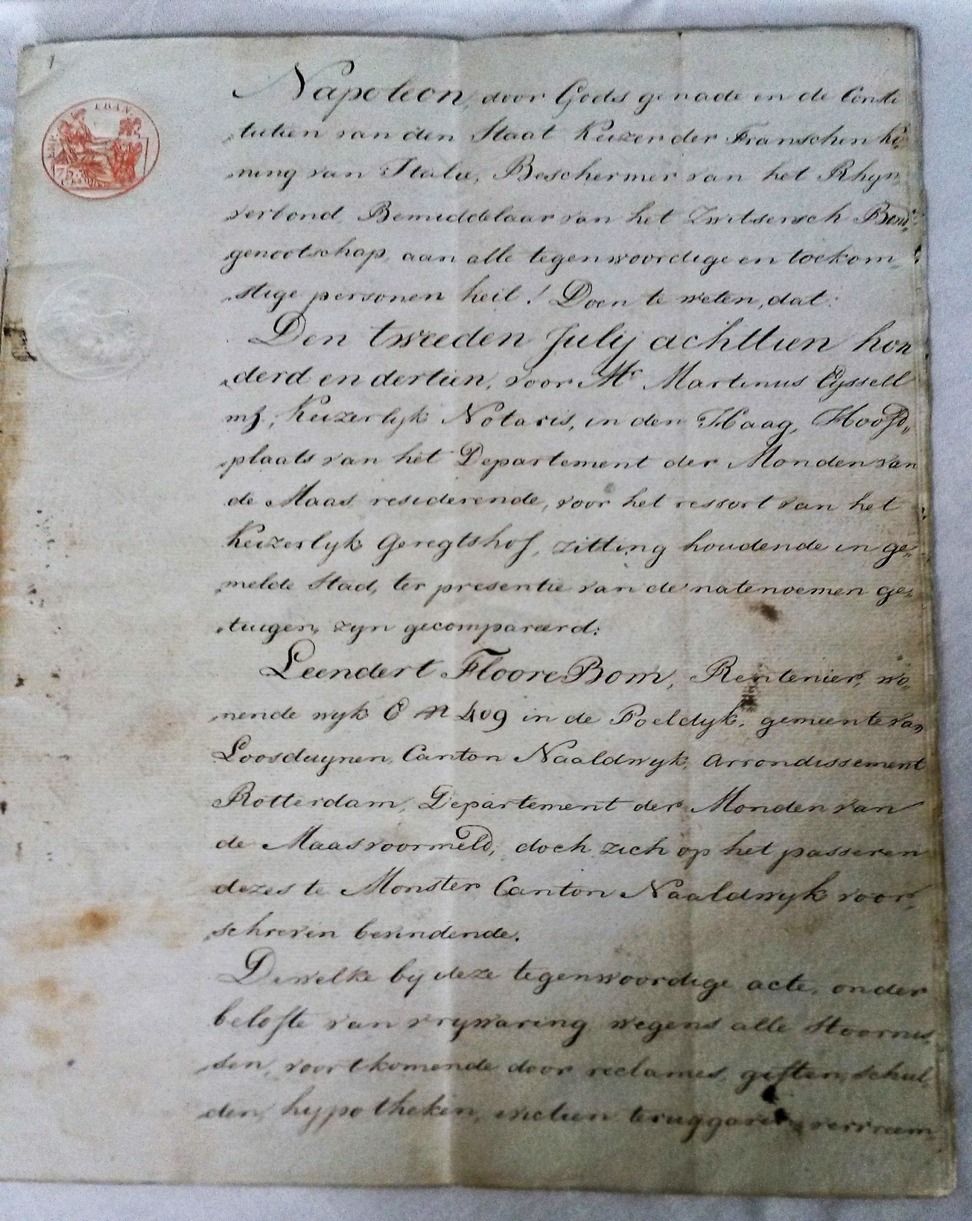 Napoleon, door Gods genade en de Consti
„tutien van den Staat Keizer der Franschen Ko„
„ning van Italie, Beschermer van het Rhyn
„verbond, Bemiddelaar van het Zwitsersch Bond„
genootschap, aan alle tegenwoordige en toekom„
„stige personen heil! Doen te weten, dat:
Den tweeden Julij achttien hon
„derd en dertien, voor Mr Martinus Eyssell
Keizerlyk Notaris, in den Haag, Hoofd„
„plaats van het Departement der Monden van
de Maas residerende, voor het ressort van het
Keizerlyk Geregtshof, zitting houdende in ge„
„melde Stad, ter presentie van de natenoemen ge„
„tuigen, zyn gecompareerd:
Leendert Floore Bom, Rentenier, wo„
„nende wyk C No 409 in de Poeldyk, gemeente van
Loosduynen, Canton Naaldwyk, Arrondissement
Rotterdam, Departement der Monden van
de Maas voormeld, doch zich op het passeren
dezes te Monster Canton Naaldwyk voor„
„schreven bevindende.
Dewelke by deze tegenwoordige acte, onder
belofte van vrywaring wegens alle Stoornis
„sen, voortkomende door reclames, giften, schul„
„den, hypotheken, evictien teruggaven, vervreem